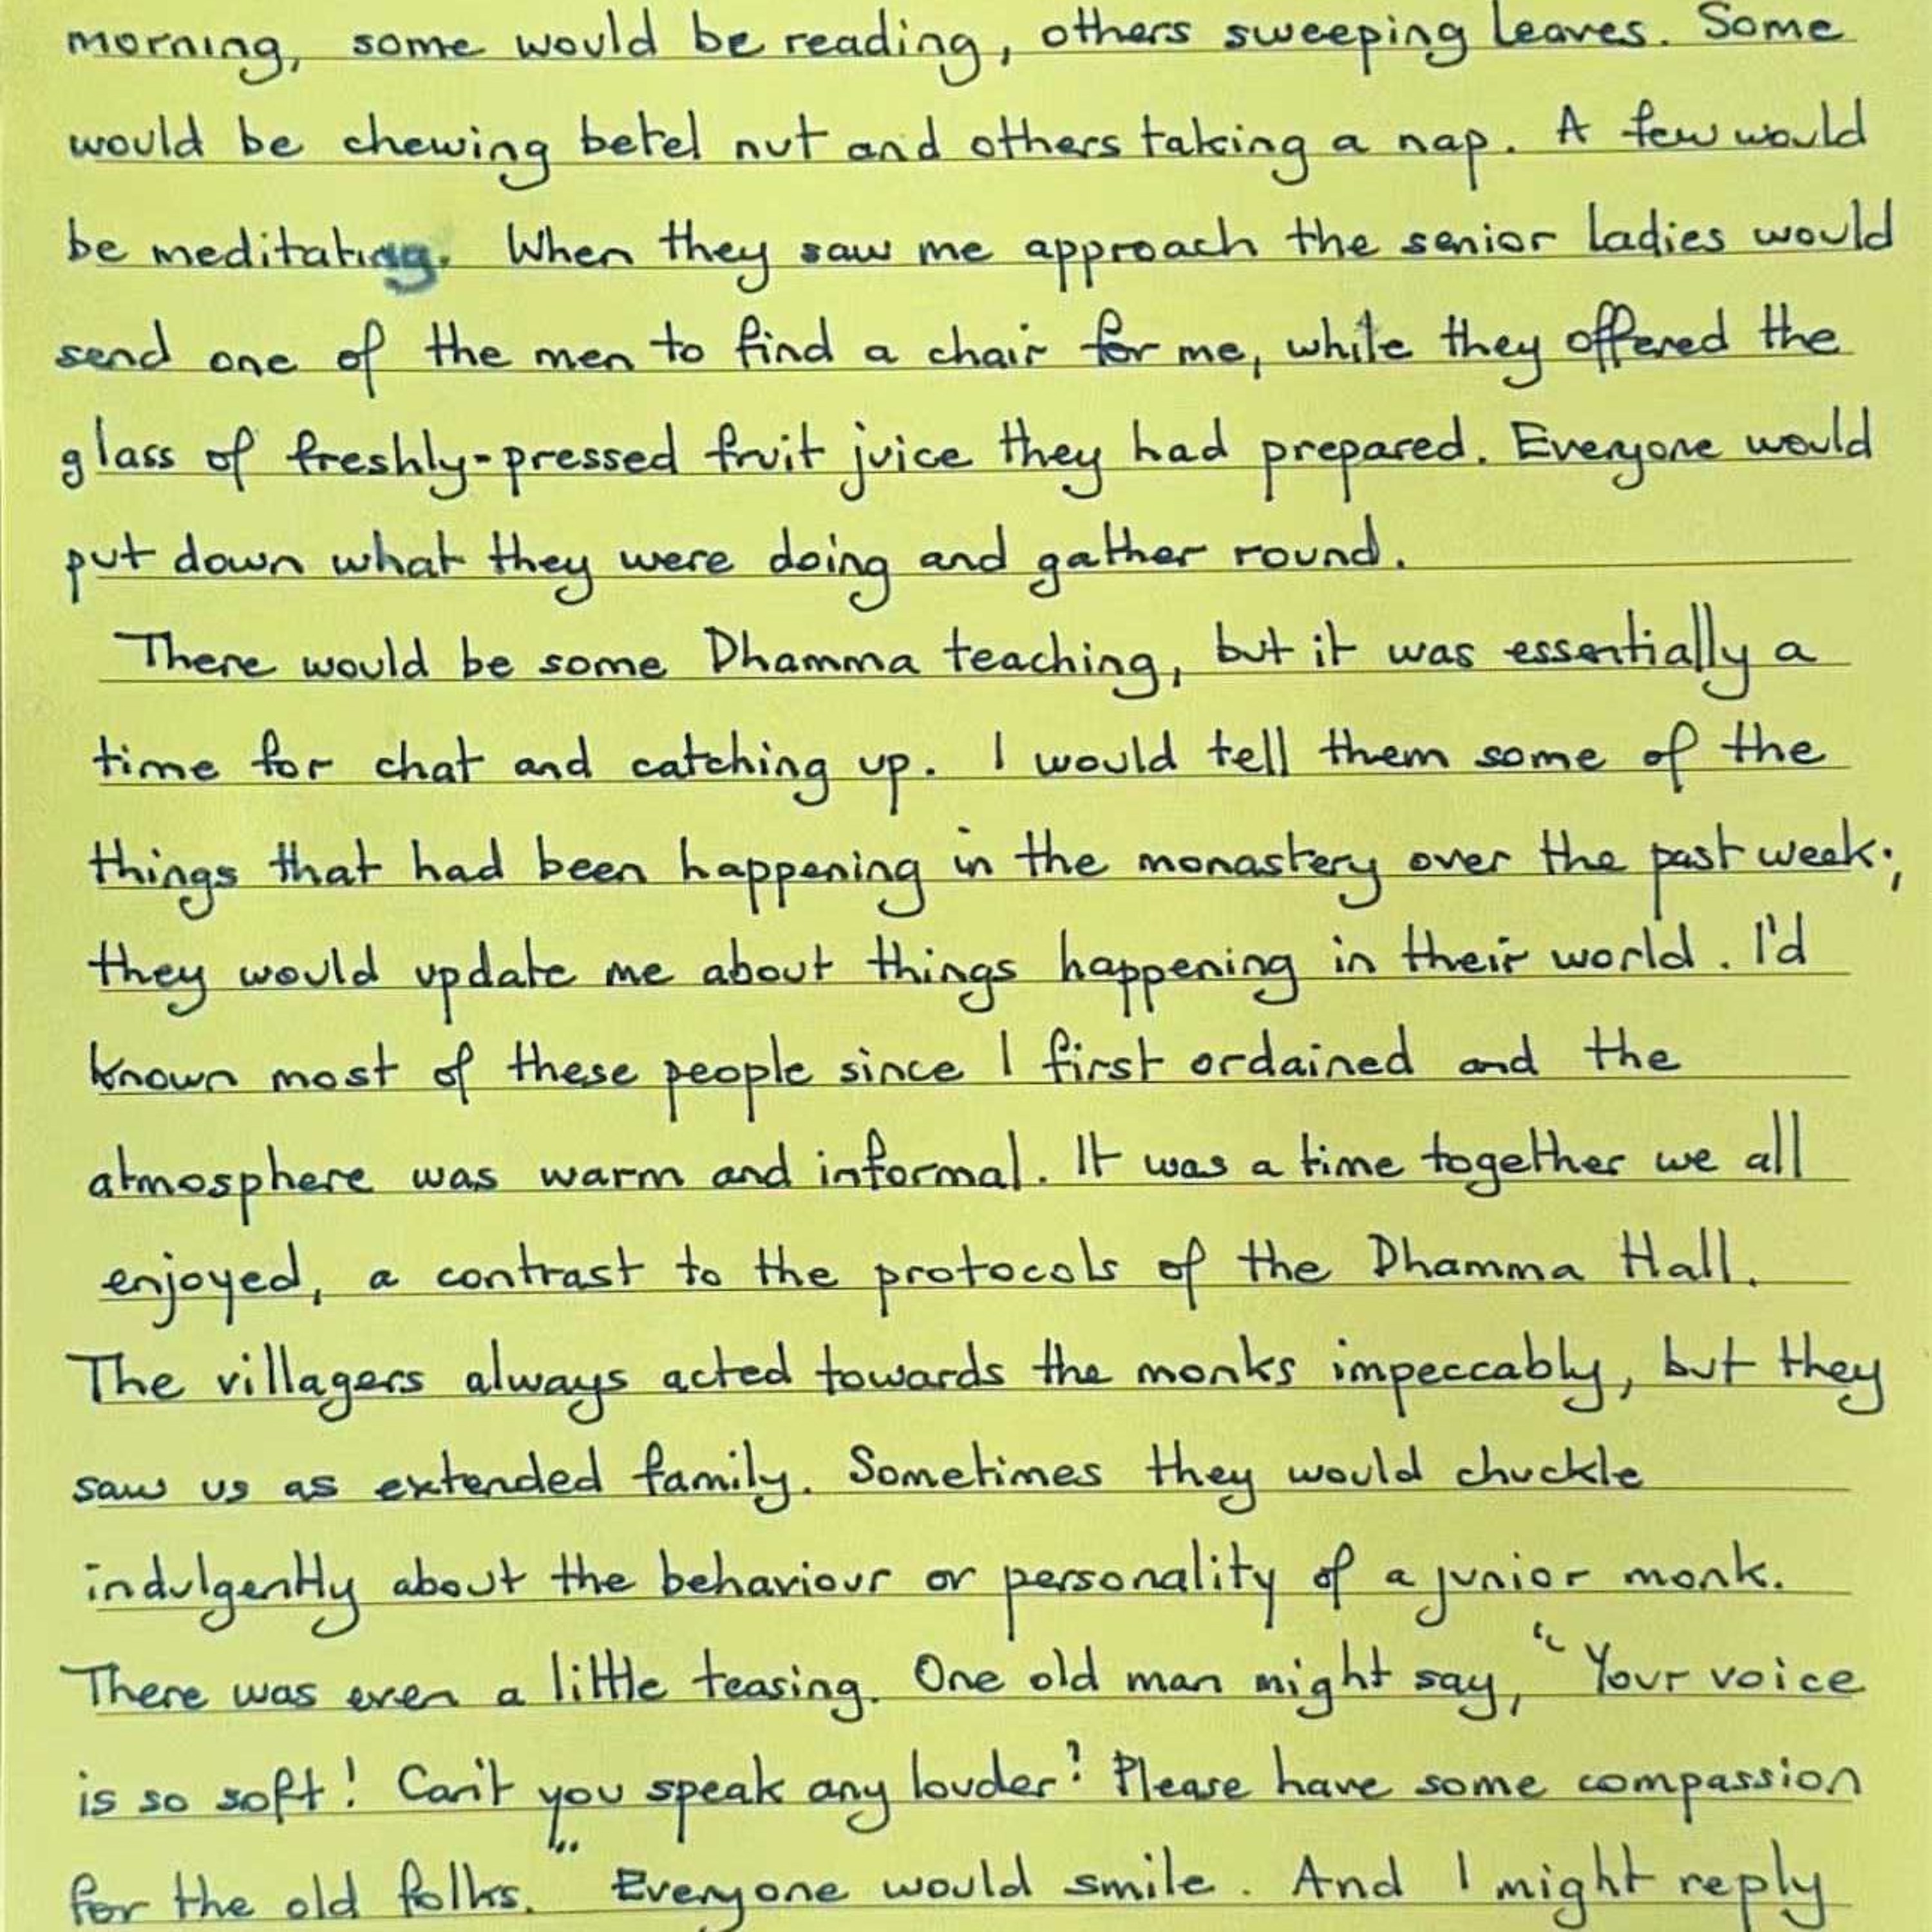 morning, some would be reading, others sweeping leaves. Some
would be chewing betel nut and others taking a nap. A few would
be meditating. When they saw me approach the senior ladies would
send one of the men to find a chair for me, while they offered the
glass of freshly-pressed fruit juice they had prepared. Everyone would
put down what they were doing and gather round.
There would be some Dhamma teaching, but it was essentially a
time for chat and catching up. I would tell them some of the
things that had been happening in the monastery over the past week;
they would update me about things happening in their world. I'd
known most of these people since I first ordained and the
atmosphere was warm and informal. It was a time together we all
enjoyed, a contrast to the protocols of the Dhamma Hall.
The villagers always acted towards the monks impeccably, but they
saw us as extended family. Sometimes they would chuckle
indulgently about the behaviour or personality of a junior monk.
There was even a little teasing. One old man might say, "Your voice
is so soft! Can't you speak any louder? Please have some compassion
for the old folks." Everyone would smile. And I might reply